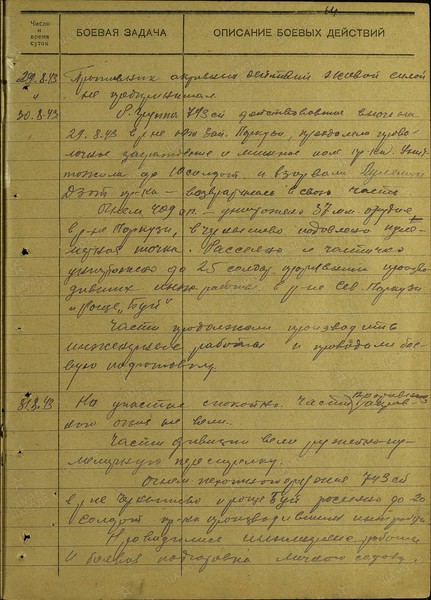 Число и время суток
БОЕВАЯ ЗАДАЧА
ОПИСАНИЕ БОЕВЫХ ДЕЙСТВИЙ
29.8.43
Противник активных действий живой силой
и
не предпринимал.
30.8.43
Р. группа 743 сп действовавшая в ночь на
29.8.43 в р-не
преодолела прово-
лочное заграждение и минное поле пр-ка. Унич-
тожила до 10 солдат и взорвала
ДЗОТ пр-ка – возвратилась в свою часть.
Огнем ап – уничтожено 37 м.м. орудие
в р-не Поркузи, в Чукантиво подавлена пуле-
метная точка. Рассеяно и частично
уничтожено до 25 солдат противника произво-
дивших инж. работы в р-не Сев. Поркузи
и Роща „Буй"
Части продолжали производить
инженерные работы и проводили бое-
вую подготовку.
31.8.43
На участке спокойно. Части противника
огня не вели.
Части дивизии вели ружейно-пу-
леметную перестрелку.
Огнем пехотного оружия 743 сп
в р-не Чукантиво и роще Буй рассеяно до 20
солдат пр-ка производивших инж. работы
Проводились инженерные работы
и боевая подготовка личного состава.